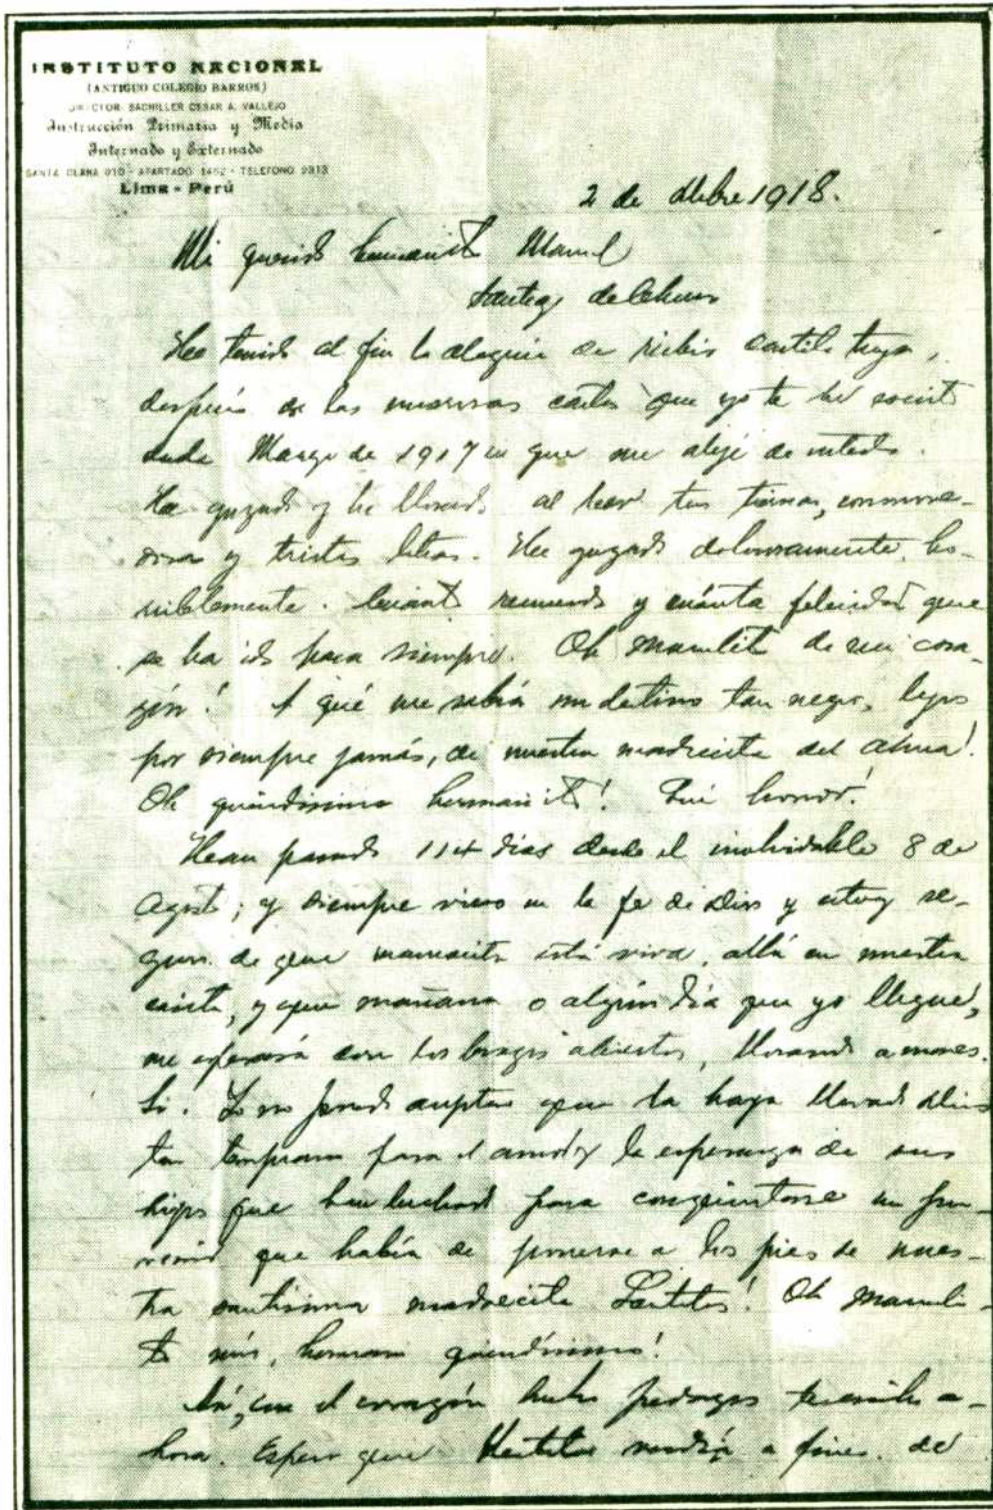 INSTITUTO NACIONAL
(ANTIGUO COLEGIO BARROS)
DIRECTOR BACHILLER CESAR A. VALLEJO
Instrucción Primaria y Media
Internado y Externado
SANTA CLARA 910 - APARTADO 1462 - TELEFONO 2313
Lima - Perú
2 de dbre 1918.
Mi querido hermanito Manuel
Santiago de Chuco
He tenido al fin la alegría de recibir cartita tuya,
después de las numerosas cartas que yo te he escrito
desde Marzo de 1917 en que me alejé de ustedes.
He gozado y he llorado al leer tus tiernas, conmove-
doras y tristes letras. He gozado dolorosamente, ho-
rriblemente. Cuánto recuerdo y cuánta felicidad que
se ha ido para siempre. Oh manuelito de mi cora-
zón! A qué me sabía mi destino tan negro, lejos
por siempre jamás, de nuestra madrecita del alma!
Oh queridísimo hermanito! Qué horror!
Han pasado 114 días desde el inolvidable 8 de
Agosto; y siempre vivo en la fe de Dios y estoy se-
guro de que mamacita está viva, allá en nuestra
casita, y que mañana o algún día que yo llegue,
me esperará con los brazos abiertos, llorando a mares.
Sí. Yo no puedo aceptar que la haya llevado Dios
tan temprano para el amor y la esperanza de sus
hijos que han luchado para conquistarse un por-
venir que había de ponerse a los pies de nues-
tra santísima madrecita Santitos! Oh manueli-
to mío, hermano queridísimo!
con el corazón hecho pedazos a-
hora. Espero que vendrá a fines de